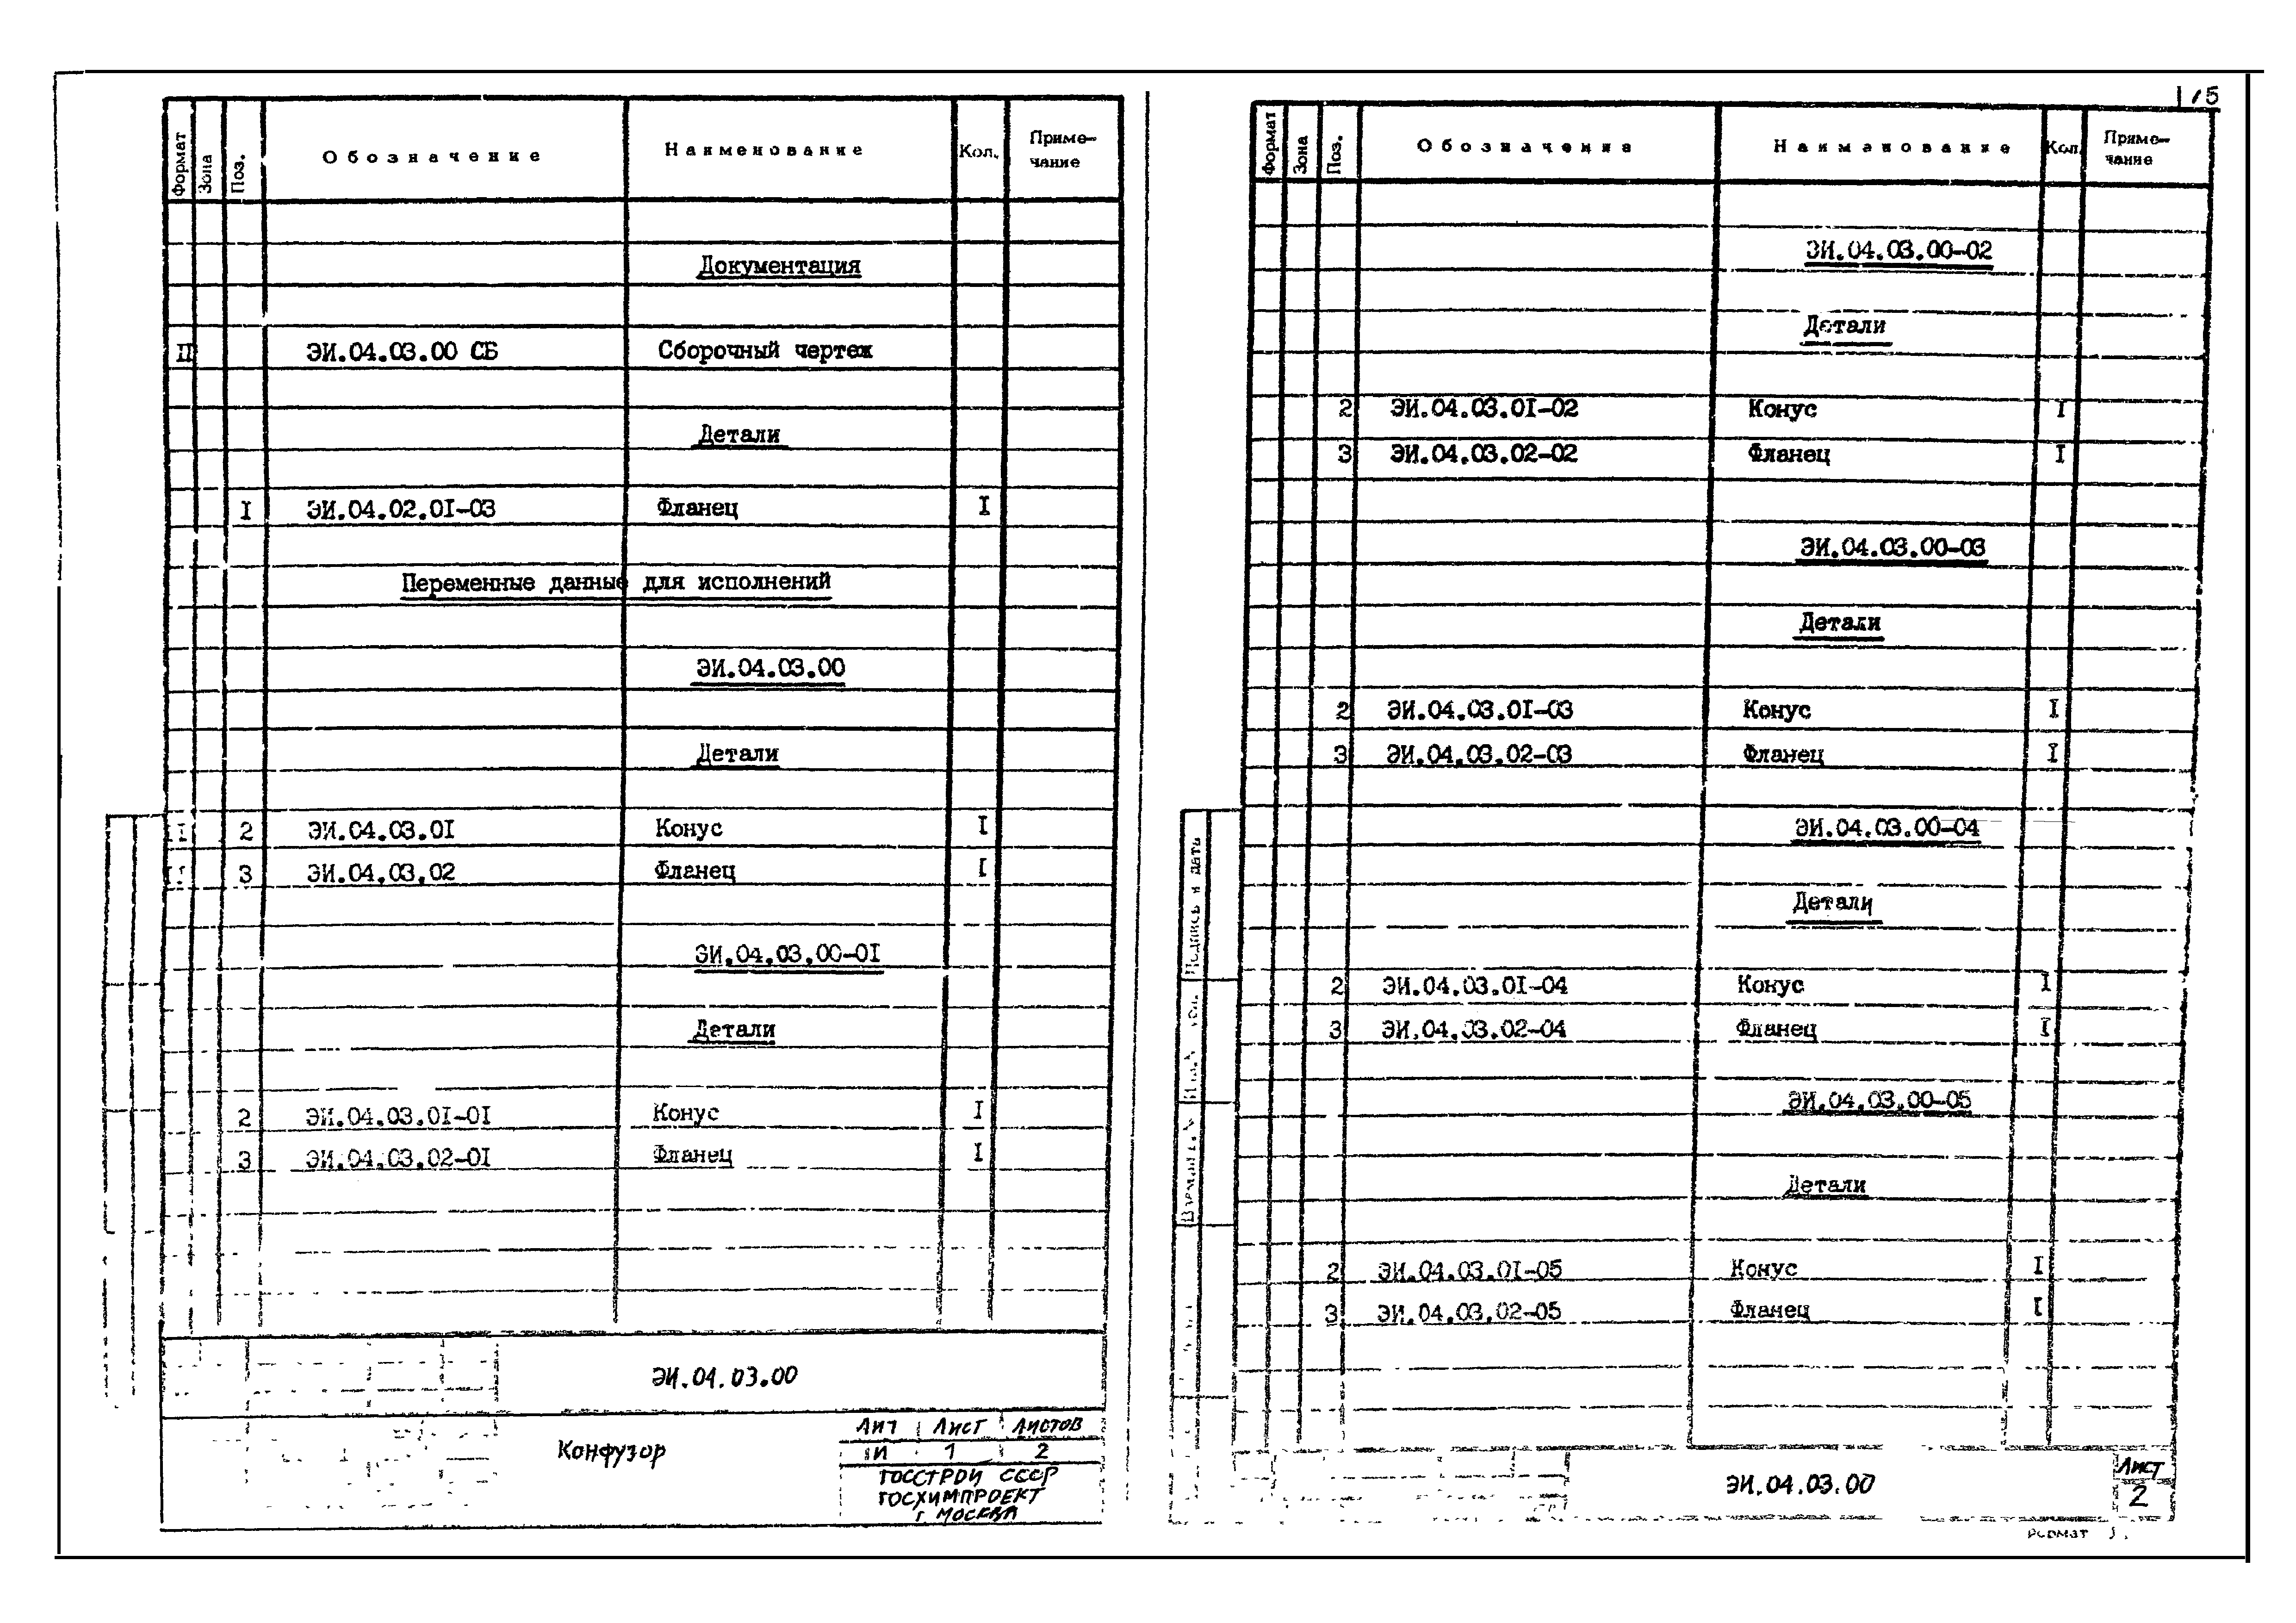 Формат Зона Поз. Обозначение Наименование Кол. Приме-
чание
Документация
II ЭИ.04.03.00 СБ Сборочный чертеж
Детали
I ЭИ.04.02.0I-03 Фланец I
Переменные данные для исполнений
ЭИ.04.03.00
Детали
2 ЭИ.04.03.0I Конус I
3 ЭИ.04.03.02 Фланец I
ЭИ.04.03.00-0I
Детали
2 ЭИ.04.03.0I-0I Конус I
3 ЭИ.04.03.02-0I Фланец I
ЭИ.04.03.00
Конфузор
Лит Лист Листов
И 1 2
ГОССТРОЙ СССР
ГОСХИМПРОЕКТ
г. МОСКВА
15
Формат Зона Поз. Обозначение Наименование Кол. Приме-
чание
ЭИ.04.03.00-02
Детали
2 ЭИ.04.03.0I-02 Конус I
3 ЭИ.04.03.02-02 Фланец I
ЭИ.04.03.00-03
Детали
2 ЭИ.04.03.0I-03 Конус I
3 ЭИ.04.03.02-03 Фланец I
ЭИ.04.03.00-04
Детали
2 ЭИ.04.03.0I-04 Конус I
3 ЭИ.04.03.02-04 Фланец I
ЭИ.04.03.00-05
Детали
2 ЭИ.04.03.0I-05 Конус I
3 ЭИ.04.03.02-05 Фланец I
Подпись и дата
ЭИ.04.03.00
Лист
2
Формат